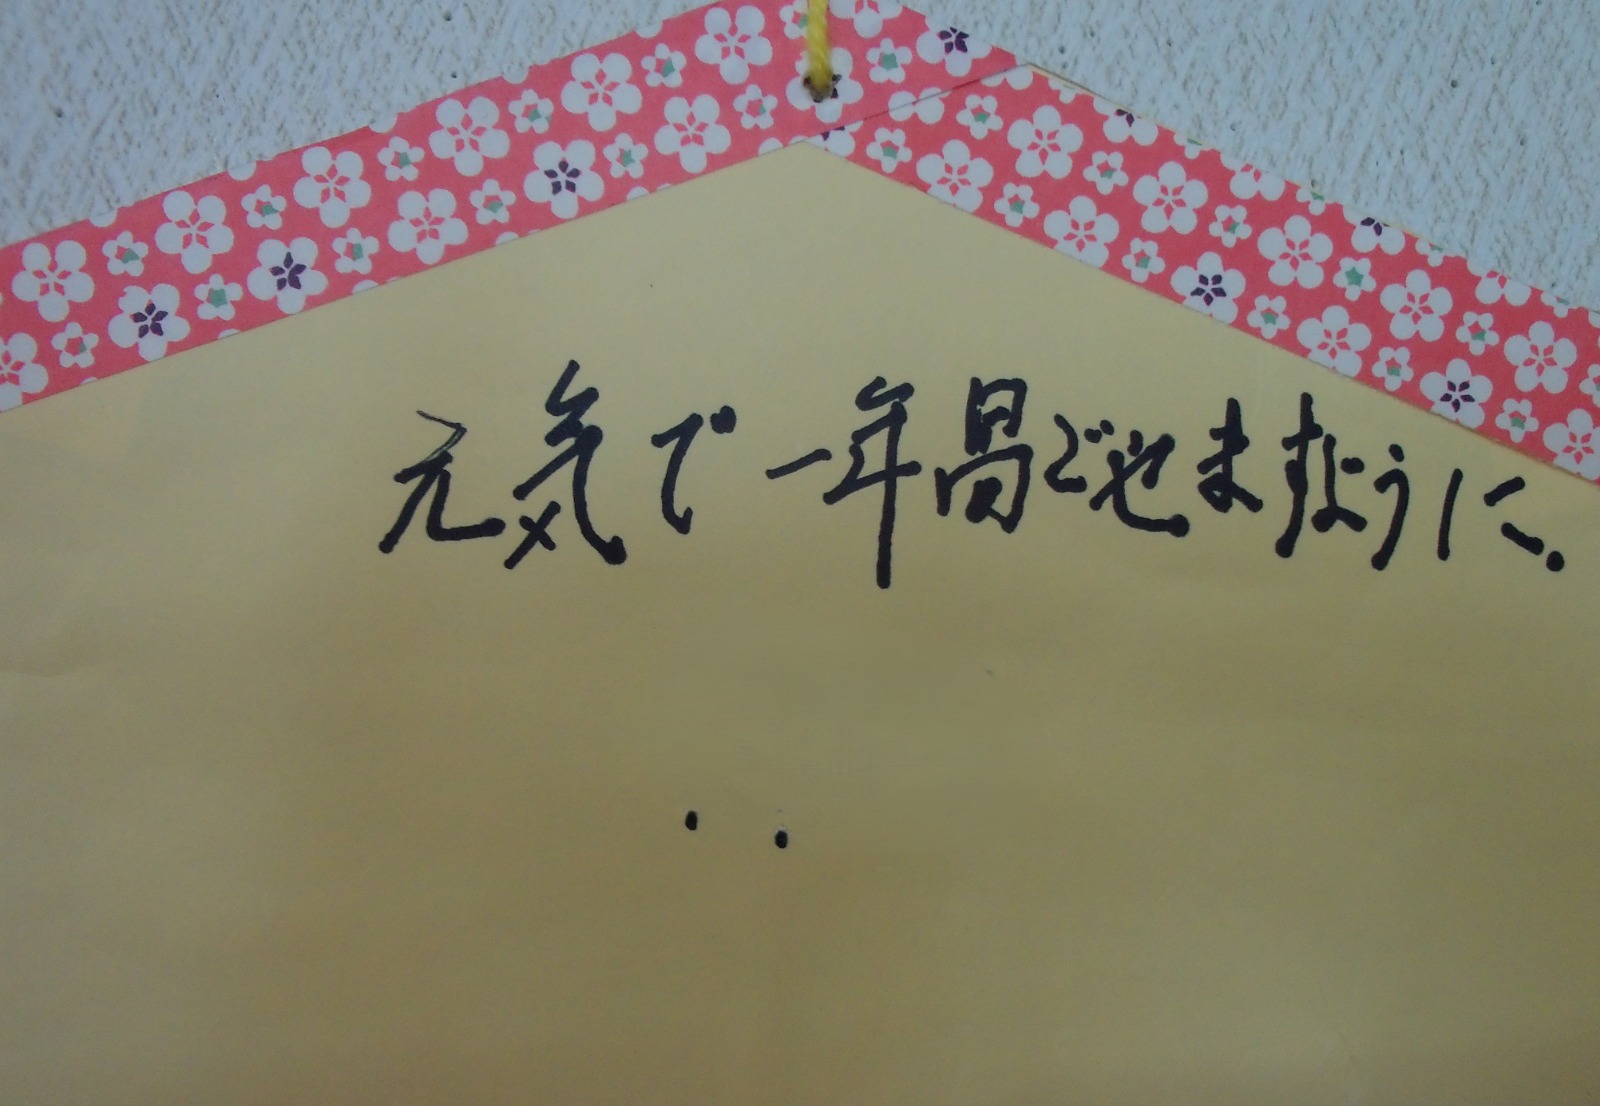 元気で一年過ごせますように.